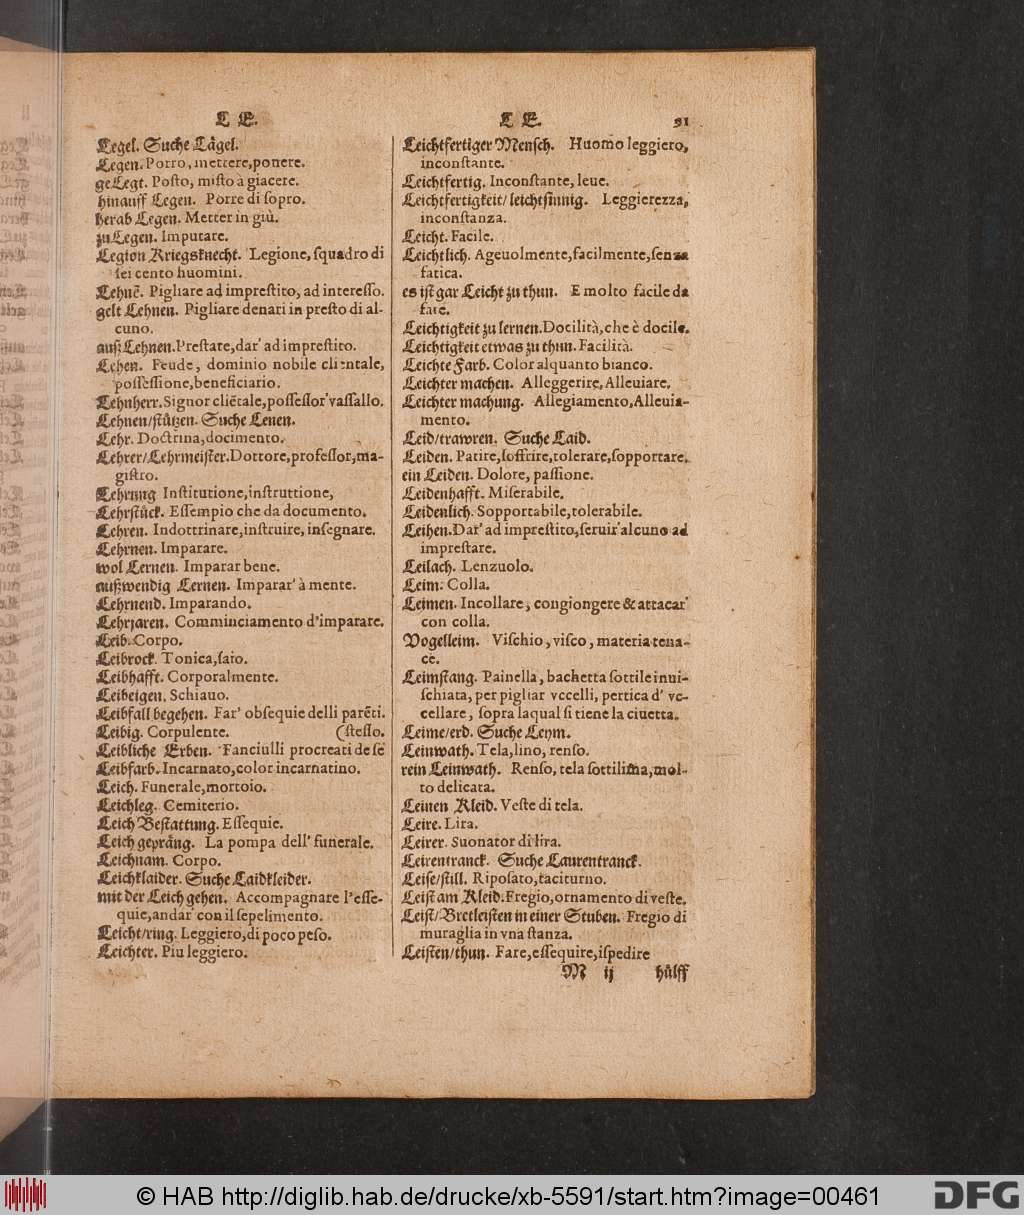 L E.
Legel. Suche Lägel.
Legen. Porro, mettere, ponere.
geLegt. Posto, misto à giacere.
hinauff Legen. Porre di sopro.
herab Legen. Metter in giù.
zu Legen. Imputare.
Legion Kriegsknecht. Legione, squadro di
sei cento huomini.
Lehnē. Pigliare ad imprestito, ad interesso.
gelt Lehnen. Pigliare denari in presto di al-
cuno.
auß Lehnen. Prestate, dar' ad imprestito.
Lehen. Feude, dominio nobile clientale,
possessione, beneficiario.
Lehnherr. Signor cliētale, possessor' vassallo.
Lehnen/stützen. Suche Lenen.
Lehr. Doctrina, docimento.
Lehrer/Lehrmeister. Dottore, professor, ma-
gistro.
Lehrung Institutione, instruttione,
Lehrstück. Essempio che da documento.
Lehren. Indottrinare, instruire, insegnare.
Lehrnen. Imparare.
wol Lernen. Imparar bene.
außwendig Lernen. Imparar' à mente.
Lehrnend. Imparando.
Lehrjaren. Comminciamento d'imparare.
Leib. Corpo.
Leibrock. Tonica, saio.
Leibhafft. Corporalmente.
Leibeigen. Schiauo.
Leibfall begehen. Far' obsequie delli parēti.
Leibig. Corpulente. (stesso.
Leibliche Erben. Fanciulli procreati de sè
Leibfarb. Incarnato, color incarnatino.
Leich. Funerale, mortoio.
Leichleg. Cemiterio.
Leich Bestattung. Essequie.
Leich gepräng. La pompa dell' funerale.
Leichnam. Corpo.
Leichklaider. Suche Laidkleider.
mit der Leich gehen. Accompagnare l'esse-
quie, andar' con il sepelimento.
Leicht/ring. Leggiero, di poco peso.
Leichter. Piu leggiero.
L E. 91
Leichtfertiger Mensch. Huomo leggiero,
inconstante.
Leichtfertig. Inconstante, leue.
Leichtfertigkeit/leichtsinnig. Leggierezza,
inconstanza.
Leicht. Facile.
Leichtlich. Ageuolmente, facilmente, senza
fatica.
es ist gar Leicht zu thun. E molto facile da
fare.
Leichtigkeit zu lernen. Docilità, che è docile.
Leichtigkeit etwas zu thun. Facilità.
Leichte Farb. Color alquanto bianco.
Leichter machen. Alleggerire, Alleuiare.
Leichter machung. Allegiamento, Alleuia-
mento.
Leid/trawren. Suche Laid.
Leiden. Patire, soffrire, tolerare, sopportare.
ein Leiden. Dolore, passione.
Leidenhafft. Miserabile.
Leidenlich. Sopportabile, tolerabile.
Leihen. Dar' ad imprestito, seruir' alcuno ad
imprestare.
Leilach. Lenzuolo.
Leim. Colla.
Leimen. Incollare, congiongere & attacar'
con colla.
Vogelleim. Vischio, visco, materia tena-
ce.
Leimstang. Painella, bachetta sottile inui-
schiata, per pigliar vccelli, pertica d' vc-
cellare, sopra laqual si tiene la ciuetta.
Leime/erd. Suche Leym.
Leinwath. Tela, lino, renso.
rein Leinwath. Renso, tela sottilissima, mol-
to delicata.
Leinen Kleid. Veste di tela.
Leire. Lira.
Leirer. Suonator di lira.
Leirentranck. Suche Laurentranck.
Leise/still. Riposato, taciturno.
Leist am Kleid. Fregio, ornamento di veste.
Leist/Bretleisten in einer Stuben. Fregio di
muraglia in vna stanza.
Leisten/thun. Fare, essequire, ispedire
M ij hülff
© HAB http://diglib.hab.de/drucke/xb-5591/start.htm?image=00461
DFG